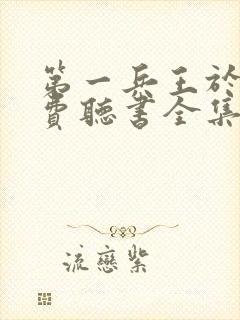 第一兵王於
費聽書全集
流戀紫